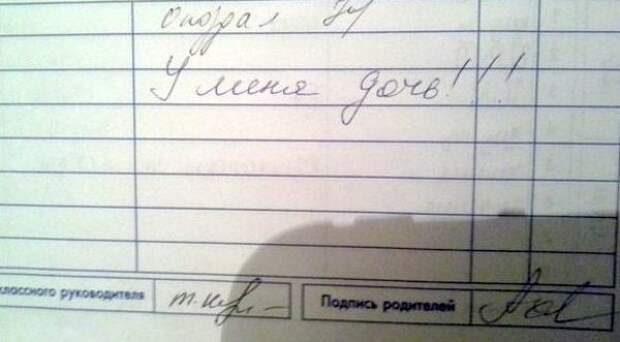 опоздал
У меня дочь!!!
классного руководителя
Подпись родителей